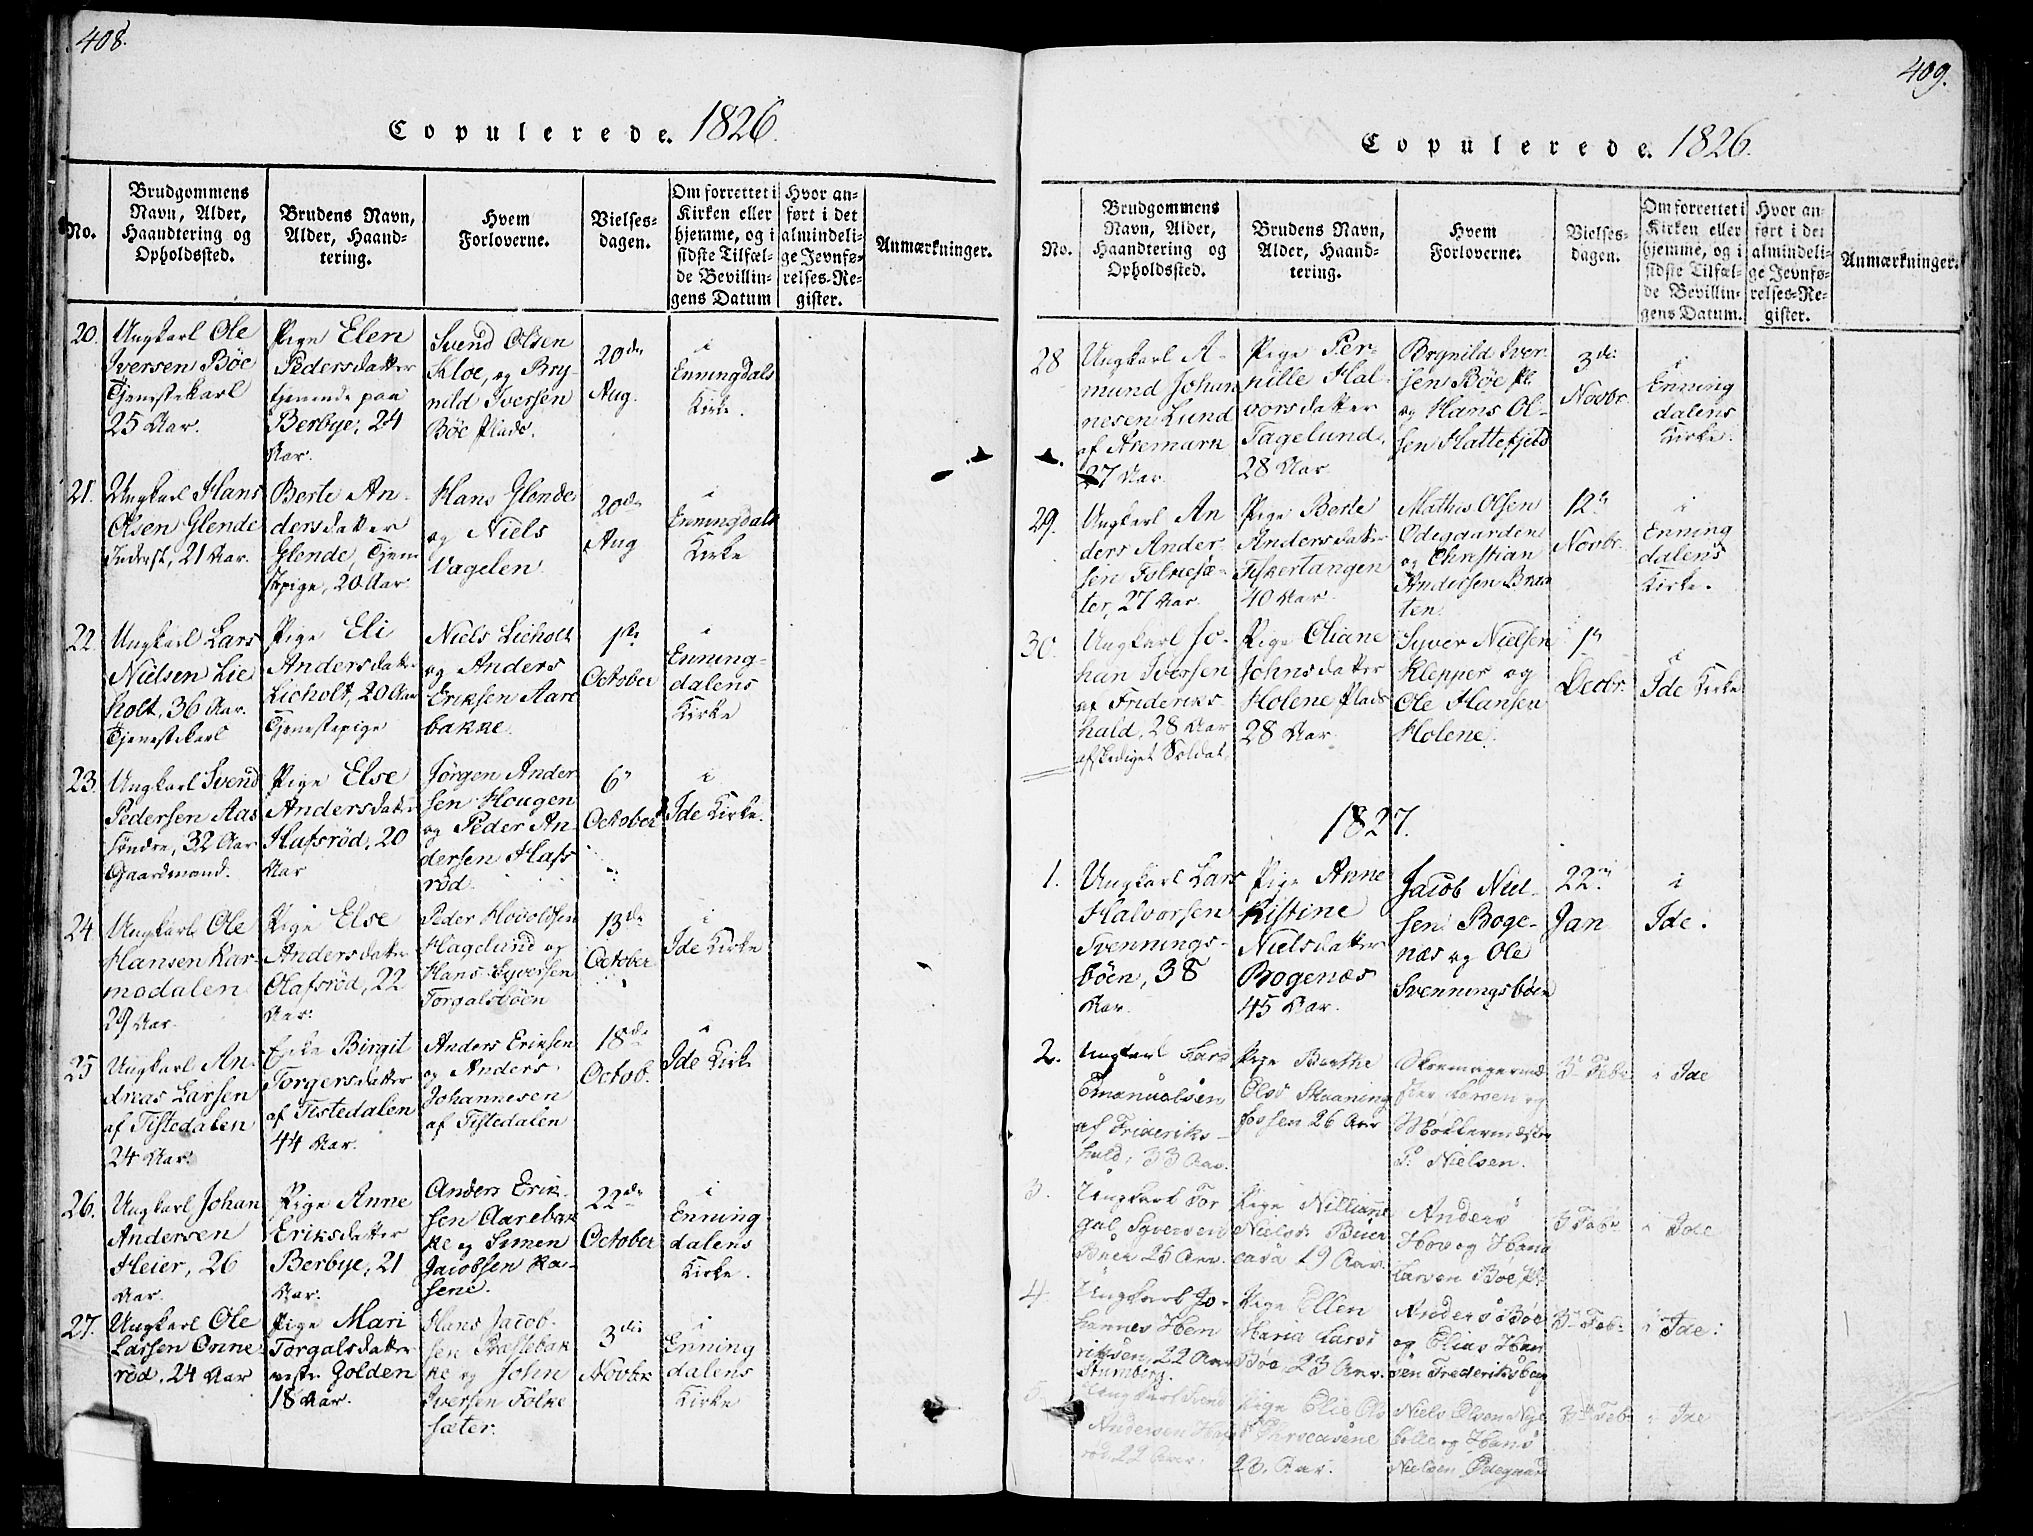 408.
Copulerede. 1826.
No.
Brudgommens
Navn, Alder,
Haandtering og
Opholdssted.
Brudens Navn,
Alder, Haand-
tering.
Hvem
Forloverne.
Vielses-
dagen.
Om forrettet i
Kirken eller
hjemme, og i
sidste Tilfæl-
de Bevillin-
gens Datum
Hvor an-
ført i det
almindeli-
ge Jevnfø-
relses-Re-
gister.
Anmærkninger.
20.
Ungkarl Ole
Iversen Böe
Tjenestekarl
25 Aar.
Pige Elen
Pedersdatter
tjenende paa
Berbye, 24
Aar.
Svend Olsen
Kloe, og Bry-
nild Iversen
Böe Plads.
20de
Aug.
i
Enningdals
Kirke.
21.
Ungkarl Hans
Olsen Glende
Inderst, 21 Aar.
Berte An-
dersdatter
Glende, Tjene
stepige, 20 Aar.
Hans Glende
og Niels
Vagelen
20de
Aug
i
Enningdals
Kirke
22.
Ungkarl Lars
Nielsen Lie
holt, 36 Aar.
Tjenestekarl
Pige Eli
Andersdatter
Lieholt, 20 Aar
Tjenestepige
Niels Lieholt
og Anders
Eriksen Aare
bakke.
1ste
October
i
Enning-
dalens
Kirke
23.
Ungkarl Svend
Pedersen Aas
söndre, 32 Aar
Gaardmand.
Pige Else
Andersdatter
Hafsröd, 20
Aar
Jörgen Ander
sen Hougen
og Peder An
dersen Hafs
röd.
6
October
i
Ide Kirke.
24.
Ungkarl Ole
Hansen Kar-
madalen
29 Aar.
Pige Else
Andersdatter
Olafsröd, 22
Aar.
Peder Hovoldsen
Hagelund og
Hans Syversen
Torgalsböen
13de
October
i
Ide Kirke
25
Ungkarl An
dreas Larsen
af Tistedalen
24 Aar.
Enke Birgit
Torgersdatter
af Tistedalen
44 Aar.
Anders Eriksen
og Anders
Johannesen
af Tistedalen
18de
Octob.
i
Ide Kirke
26.
Ungkarl Johan
Andersen
Heier, 26
Aar.
Pige Anne
Eriksdatter
Berbye, 21
Aar.
Anders Erik-
sen Aarebak
ke og Simen
Jacobsen Ka-
sene.
22de
October
i
Enning
dalens
Kirke.
27.
Ungkarl Ole
Larsen Onne
röd. 24 Aar
Pige Mari
Torgalsdatter
vestr. Golden
18 Aar.
Hans Jacob-
sen
ke og John
Iversen Folke
sæter.
3die
Novbr
i
Enning
dalens
Kirke
409.
Copulerede. 1826.
No.
Brudgommens
Navn, Alder,
Haandtering og
Opholdssted.
Brudens Navn,
Alder, Haand-
tering.
Hvem
Forloverne.
Vielses-
dagen.
Om forrettet i
Kirken eller
hjemme, og i
sidste Tilfæl-
de Bevillin-
gens Datum.
Hvor an-
ført i det
almindeli-
ge Jevnfø-
relses-Re-
gister.
Anmærkninger.
28
Ungkarl A-
mund Johan
nesen Lund
af Aremark
27 Aar.
Pige Per-
nille Hal-
vorsdatter
Tagelund,
28 Aar.
Brynild Iver-
sen Böe Pl.
og Hans Ol-
sen Hattefjeld
3die
Novbr
i
Enning
dalens
Kirke.
29.
Ungkarl An
ders Ander-
sen Folkesæ-
ter, 27 Aar.
Pige Berte
Andersdatter
Fiskertangen
40 Aar.
Mathis Olsen
Ödegaarden
og Christian
Andersen Braa
ten.
12te
Novbr.
i
Enning
dalens
Kirke.
30.
Ungkarl Jo-
han Iversen
af Frideriks
hald, 28 Aar
afskediget Soldat,
Pige Oliane
Johnsdatter
Holene Plads
28 Aar.
Syver Nielsen
Klepper og
Ole Hansen
Holene.
1
Decbr.
i
Ide Kirke
1827.
1.
Ungkarl Lars
Halvorsen
Svennings-
böen, 38
Aar.
Pige Anne
Kistine
Nielsdatter
Bogenæs
45 Aar.
Jacob Niel-
sen Boge-
næs og Ole
Svenningsböen
22
Jan
i
Ide.
2.
Ungkarl Lars
Emanuelsen
af Frideriks-
hald, 33 Aar.
Pige Berthe
Olsd Skaaning
fossen 26 Aar
Skoemagermæ
ster Larsen og
Møllermæster
P. Nielsen.
3 Febr
i Ide
3.
Ungkarl Tor
gal Syversen
Buer 25 Aar.
Pige Nilliane
Nielsd. Buer
19 Aar.
Anders
Hov og Hans
Larsen Böe Pl
3 Febr
i Ide
4.
Ungkarl Jo-
hannes Hen
riksen, 22 Aar
Stumberg.
Pige Ellen
Maria Larsd
Böe 23 Aar.
Anders Böe
og Elias Han
sen Frederiksberg
3 Feb.
i Ide.
5.
Ungkarl Svend
Andersen
röd 22 Aar.
Pige Elie Ols
23. Aar.
Niels Olsen
og Hans
Nielsen Ödegaard
3 Feb
i Ide